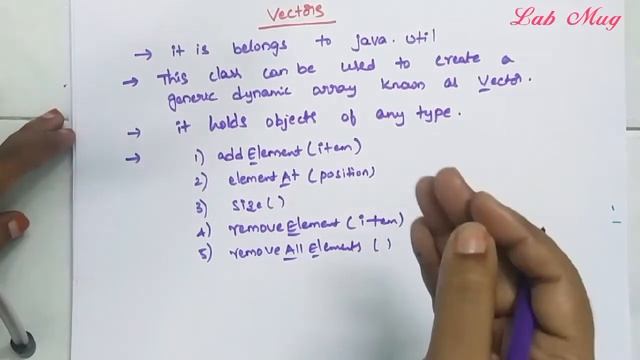 Vectors
Lab Mug
→ it is belongs to java.util
→ This class can be used to create a
generic dynamic array known as Vector.
→ it holds objects of any type.
→ 1) addElement(item)
2) elementAt(position)
3) size()
4) removeElement(item)
5) removeAllElements()